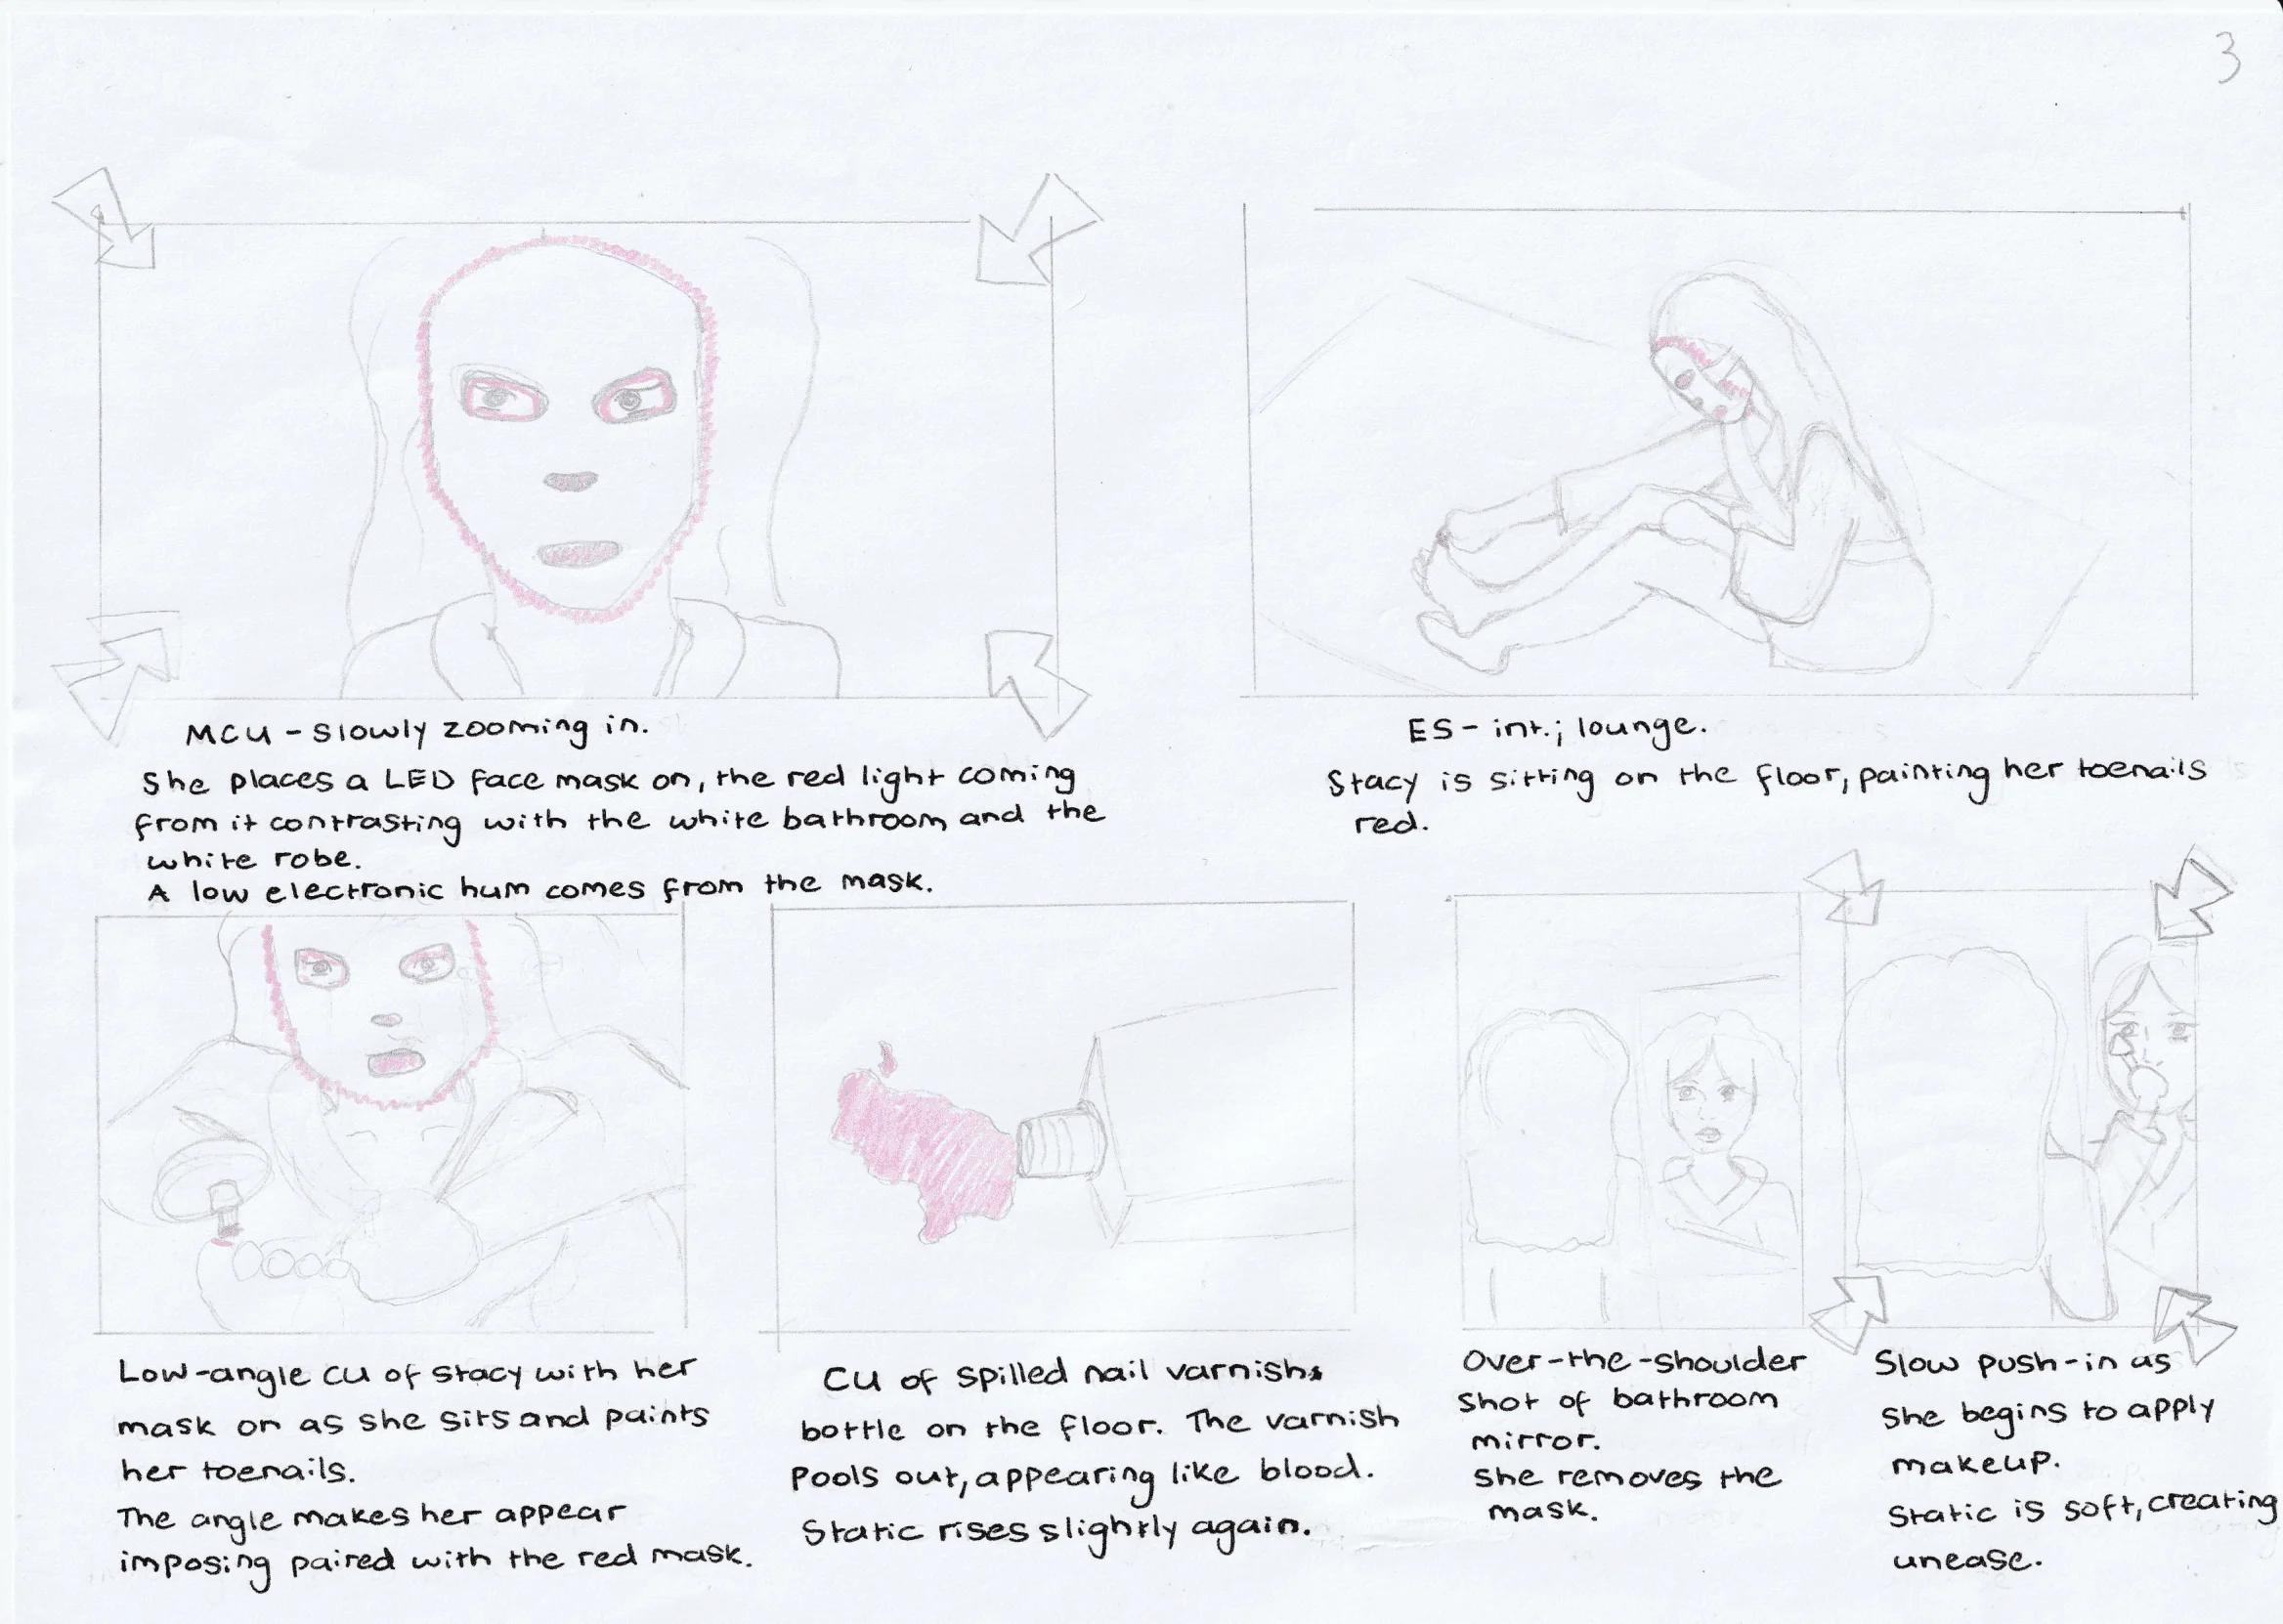 3
MCU - slowly zooming in.
She places a LED face mask on, the red light coming
from it contrasting with the white bathroom and the
white robe.
A low electronic hum comes from the mask.
ES - int.; lounge.
Stacy is sitting on the floor, painting her toenails
red.
Low-angle CU of Stacy with her
mask on as she sits and paints
her toenails.
The angle makes her appear
imposing paired with the red mask.
CU of spilled nail varnish
bottle on the floor. The varnish
pools out, appearing like blood.
Static rises slightly again.
Over-the-shoulder
shot of bathroom
mirror.
She removes the
mask.
Slow push-in as
she begins to apply
makeup.
Static is soft, creating
unease.